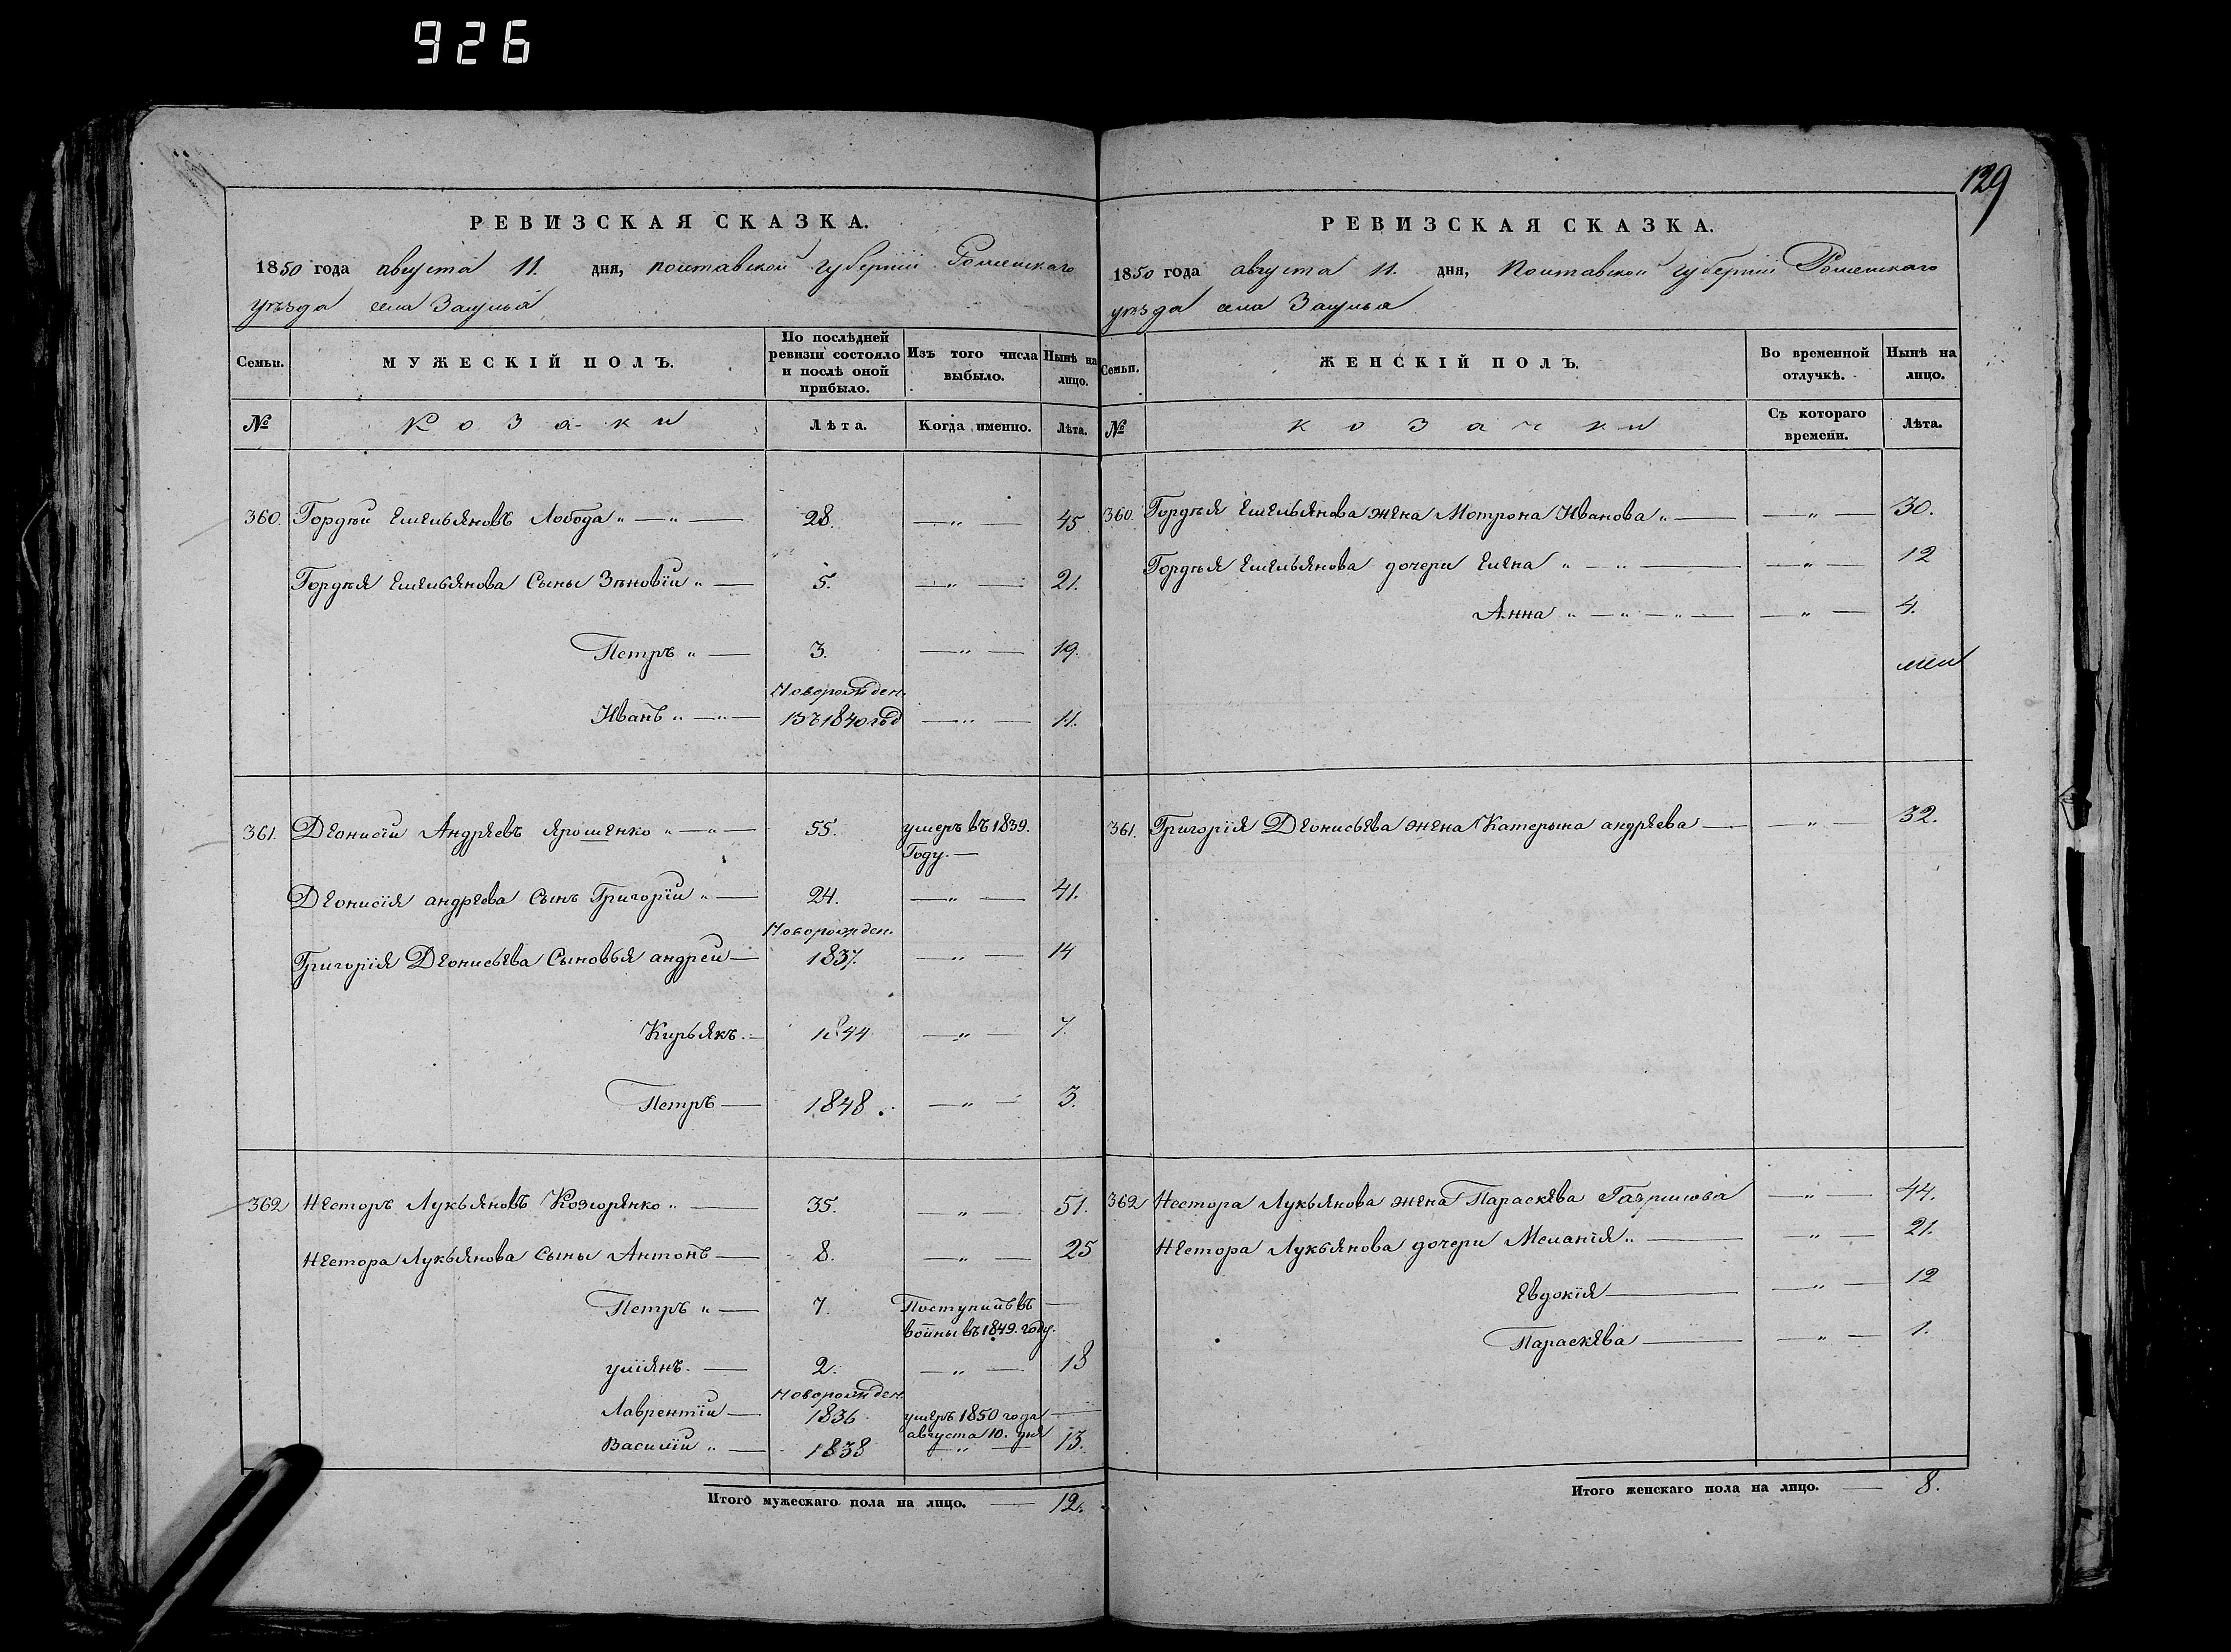 926
129
РЕВИЗСКАЯ СКАЗКА.
1850 года августа 11. дня, Полтавской губернии Роменскаго
уѣзда села Засулья
Семьи.
МУЖЕСКІЙ ПОЛЪ.
По послѣдней ревизіи состояло и послѣ оной прибыло.
Изъ того числа выбыло.
Нынѣ на лицо.
№
Козаки
Лѣта.
Когда именно.
Лѣта.
360. Гордѣй Емельяновъ Лобода „ — „ — 28. — „ — 45
Гордѣя Емельянова Сыны Зѣновій „ — 5. — „ — 21.
Петръ „ — 3. — „ — 19.
Новорожден.
Иванъ „ — „ — въ 1840 год — „ — 11.
361. Деонисій Андреевъ Ярошенко „ — „ — 55. умеръ въ 1839.
Году. —
Деонисія андреева Сынъ Григорій „ — 24. — „ — 41.
Новорожден.
Григорія Деонисьева Сыновья андрей — 1837. — „ — 14
Кирьякъ. — 1844 — „ — 7.
Петръ — 1848. — „ — 3.
362 Несторъ Лукьяновъ Козгорѣнко „ — 35. — „ — 51.
Нестора Лукьянова Сыны Антонъ — 8. — „ — 25
Петръ „ — 7. Поступилъ въ —
войны въ 1849. году.
улiянъ. — 2. — „ — 18
Новорожден.
Лаврентій — 1836 умеръ 1850 года —
августа 10. дня
Василій „ — 1838 — „ — 13.
Итого мужескаго пола на лицо. — 12.
РЕВИЗСКАЯ СКАЗКА.
1850 года августа 11. дня, Полтавской губерніи Роменскаго
уѣзда села Засулья
Семьи.
ЖЕНСКІЙ ПОЛЪ.
Во временной отлучкѣ.
Нынѣ на лицо.
№
козачки
Съ котораго времени.
Лѣта.
360. Гордѣя Емельянова жена Мотрона Иванова „ — — „ — 30.
Гордѣя Емельянова дочери Елена „ — „ — — „ — 12
Анна „ — „ — „ — — „ — 4.
361. Григорія Деонисьева жена Катерына андреева — — „ — 32.
362 Нестора Лукьянова жена Параскева Гаврилова — „ — 44.
Нестора Лукьянова дочери Меланія „ — — „ — 21.
Евдокія — — „ — 12
Параскева — — „ — 1.
Итого женскаго пола на лицо. — 8.